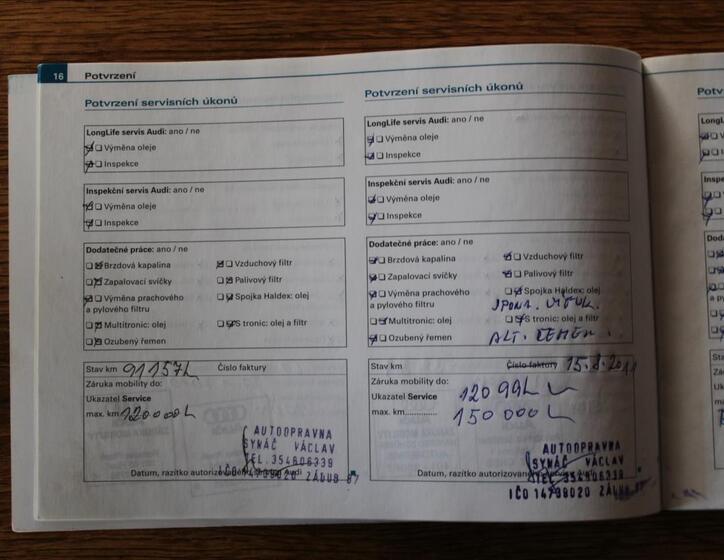 16 Potvrzení
Potvrzení servisních úkonů
LongLife servis Audi: ano / ne
Výměna oleje
Inspekce
Inspekční servis Audi: ano / ne
Výměna oleje
Inspekce
Dodatečné práce: ano / ne
Brzdová kapalina Vzduchový filtr
Zapalovací svíčky Palivový filtr
Výměna prachového Spojka Haldex: olej
a pylového filtru
Multitronic: olej S tronic: olej a filtr
Ozubený řemen
Stav km 91157 Číslo faktury
Záruka mobility do:
Ukazatel Service
max. km 120000
AUTOOPRAVNA
SYNÁČ VÁCLAV
TEL. 354606339
Datum, razítko
IČO 14798020 ZÁDUB 87
Potvrzení servisních úkonů
LongLife servis Audi: ano / ne
Výměna oleje
Inspekce
Inspekční servis Audi: ano / ne
Výměna oleje
Inspekce
Dodatečné práce: ano / ne
Brzdová kapalina Vzduchový filtr
Zapalovací svíčky Palivový filtr
Výměna prachového Spojka Haldex: olej
a pylového filtru
Multitronic: olej S tronic: olej a filtr
Ozubený řemen ALT. ŘEMEN
Stav km Číslo faktury
Záruka mobility do:
Ukazatel Service
max. km 150000
AUTOOPRAVNA
SYNÁČ VÁCLAV
TEL. 354606339
Datum, razítko
IČO 14798020